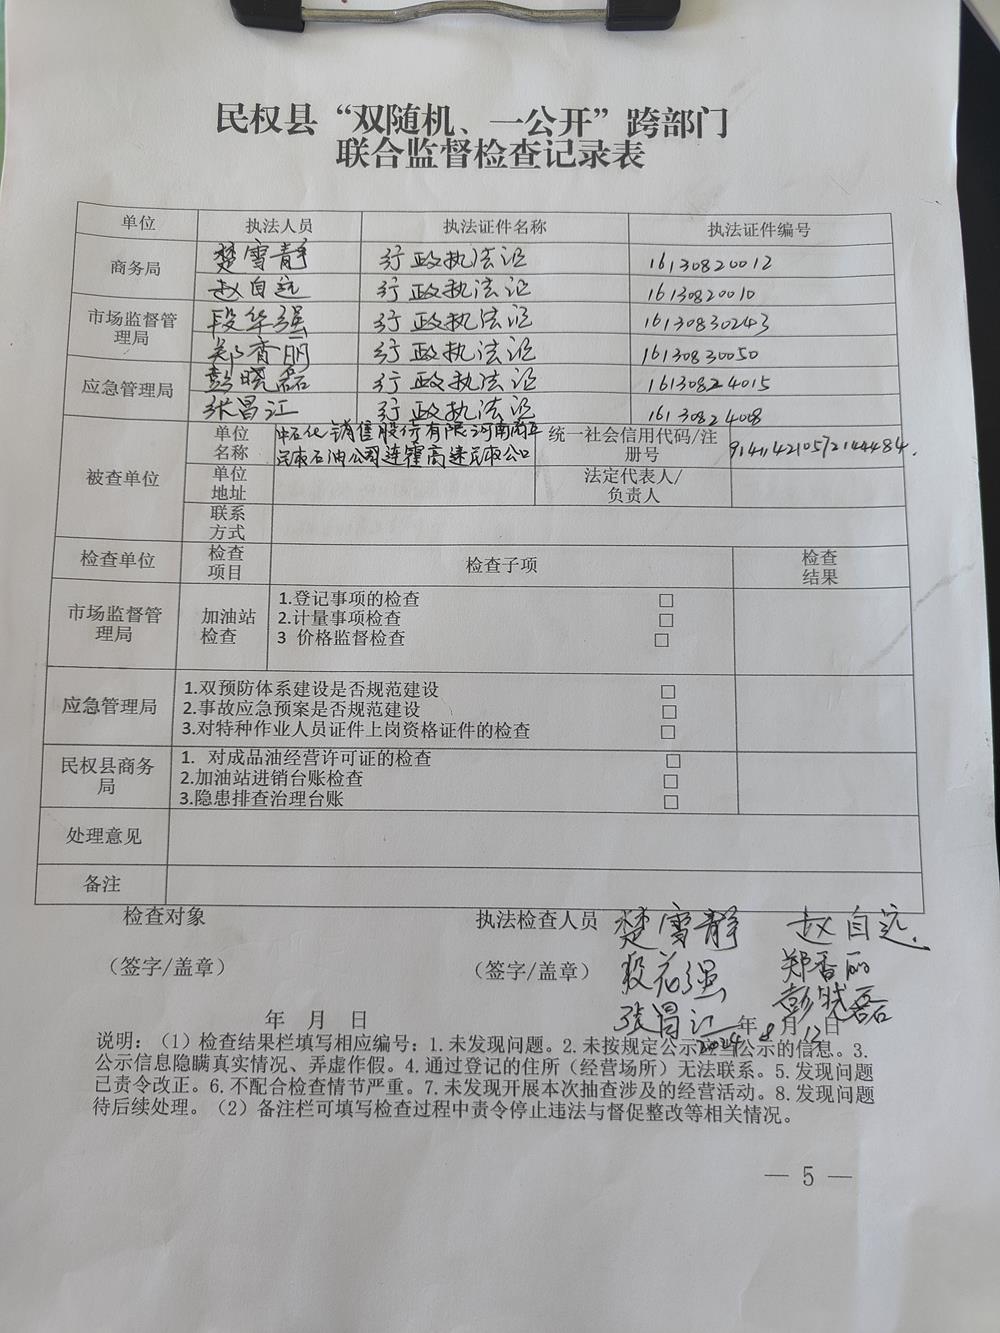 民权县“双随机、一公开”跨部门
联合监督检查记录表
单位 执法人员 执法证件名称 执法证件编号
商务局 楚雪静 行政执法证 16130820012
赵自远 行政执法证 16130820010
市场监督管理局 段华强 行政执法证 16130830243
郑香丽 行政执法证 16130830050
应急管理局 彭晓磊 行政执法证 16130824015
张昌江 行政执法证 16130824008
被查单位 单位名称 中石化销售股份有限河南商丘
民权石油公司连霍高速民权公口
统一社会信用代码/注册号
单位地址 法定代表人/负责人
联系方式
检查单位 检查项目 检查子项 检查结果
市场监督管理局 加油站检查
1.登记事项的检查 □
2.计量事项检查 □
3 价格监督检查 □
应急管理局
1.双预防体系建设是否规范建设 □
2.事故应急预案是否规范建设 □
3.对特种作业人员证件上岗资格证件的检查 □
民权县商务局
1. 对成品油经营许可证的检查 □
2.加油站进销台账检查 □
3.隐患排查治理台账 □
处理意见
备注
检查对象 执法检查人员 楚雪静 赵自远
（签字/盖章） （签字/盖章） 段花强 郑香丽
张昌江 彭晓磊
年 月 日 2024年8月13日
说明：（1）检查结果栏填写相应编号：1.未发现问题。2.未按规定公示应当公示的信息。3.
公示信息隐瞒真实情况、弄虚作假。4.通过登记的住所（经营场所）无法联系。5.发现问题
已责令改正。6.不配合检查情节严重。7.未发现开展本次抽查涉及的经营活动。8.发现问题
待后续处理。（2）备注栏可填写检查过程中责令停止违法与督促整改等相关情况。
— 5 —